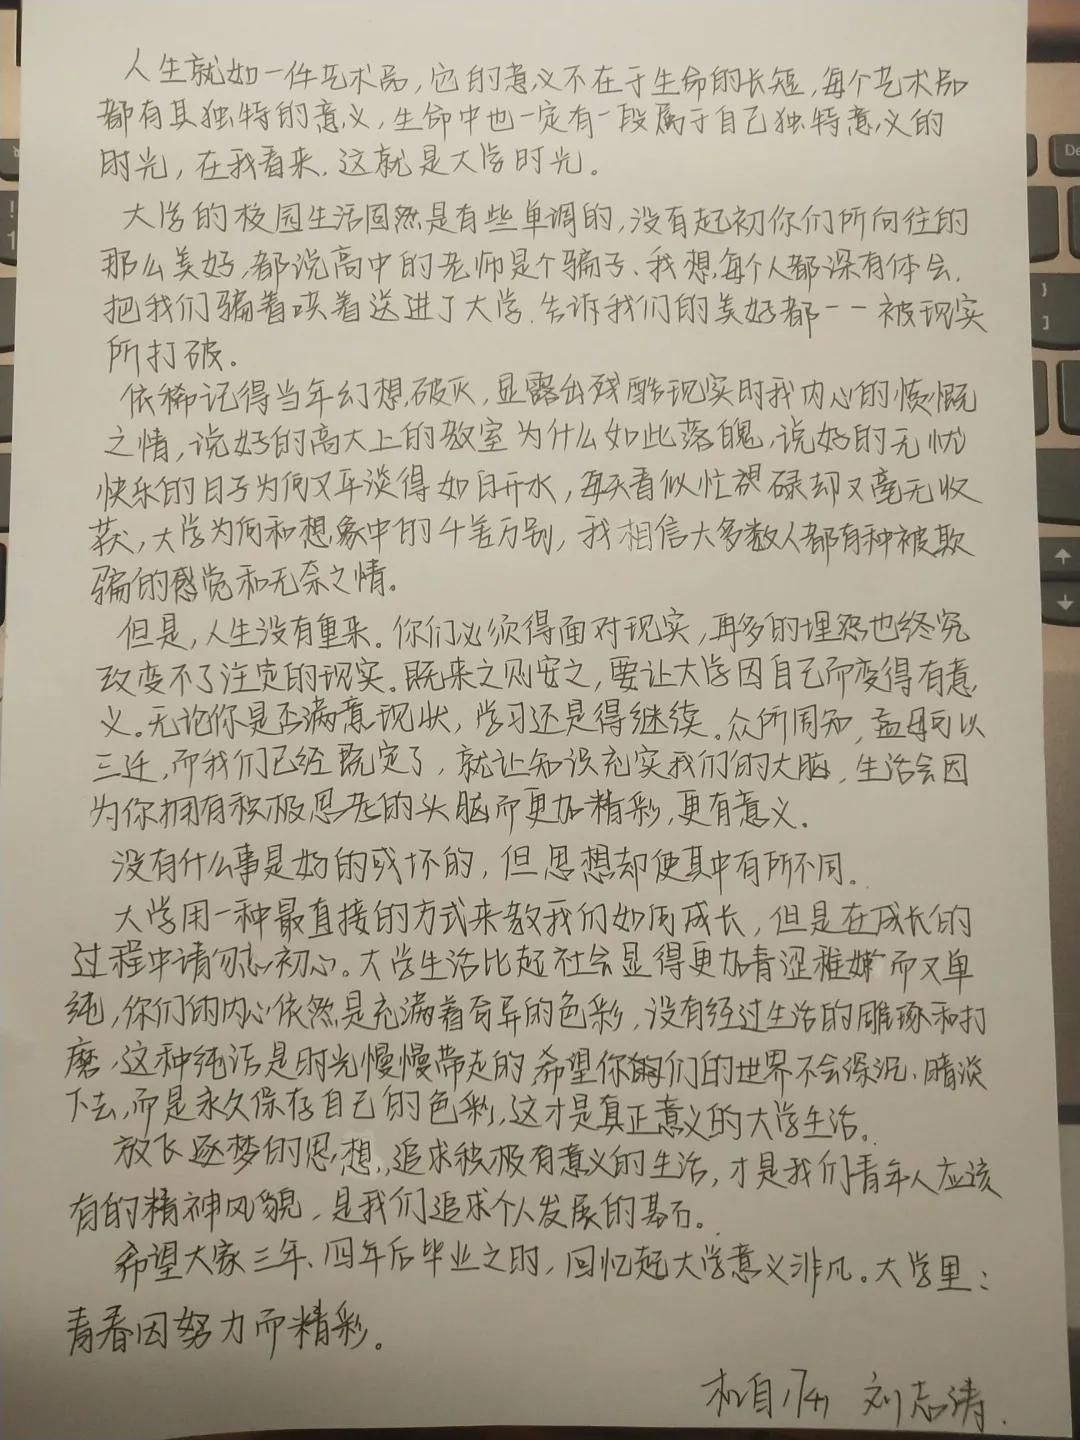 人生就如一件艺术品,它的意义不在于生命的长短,每个艺术品
都有其独特的意义,生命中也一定有一段属于自己独特意义的
时光,在我看来,这就是大学时光。
大学的校园生活固然是有些单调的,没有起初你们所向往的
那么美好,都说高中的老师是个骗子、我想,每个人都深有体会,
把我们骗着哄着送进了大学,告诉我们的美好都一一被现实
所打破。
依稀记得当年幻想破灭,显露出残酷现实时我内心的愤慨
之情,说好的高大上的教室为什么如此落魄,说好的无忧
快乐的日子为何又平淡得如白开水,每天看似忙碌却又毫无收
获,大学为何和想象中的千差万别,我相信大多数人都有种被欺
骗的感觉和无奈之情。
但是,人生没有重来。你们必须得面对现实,再多的埋怨也终究
改变不了注定的现实。既来之则安之,要让大学因自己而变得有意
义。无论你是否满意现状,学习还是得继续。众所周知,孟母可以
三迁,而我们已经既定了,就让知识充实我们的大脑,生活会因
为你拥有积极思考的头脑而更加精彩,更有意义.
没有什么事是好的或坏的,但思想却使其中有所不同。
大学用一种最直接的方式来教我们如何成长,但是在成长的
过程中请勿忘初心。大学生活比起社会显得更加青涩稚嫩而又单
纯,你们的内心依然是充满着奇异的色彩,没有经过生活的雕琢和打
磨,这种纯洁是时光慢慢带走的,希望你们的世界不会深沉、暗淡
下去,而是永久保存自己的色彩,这才是真正意义的大学生活。
放飞逐梦的思想,追求积极有意义的生活,才是我们青年人应该
有的精神风貌,是我们追求个人发展的基石。
希望大家三年、四年后毕业之时,回忆起大学意义非凡。大学里:
青春因努力而精彩。
刘志涛.